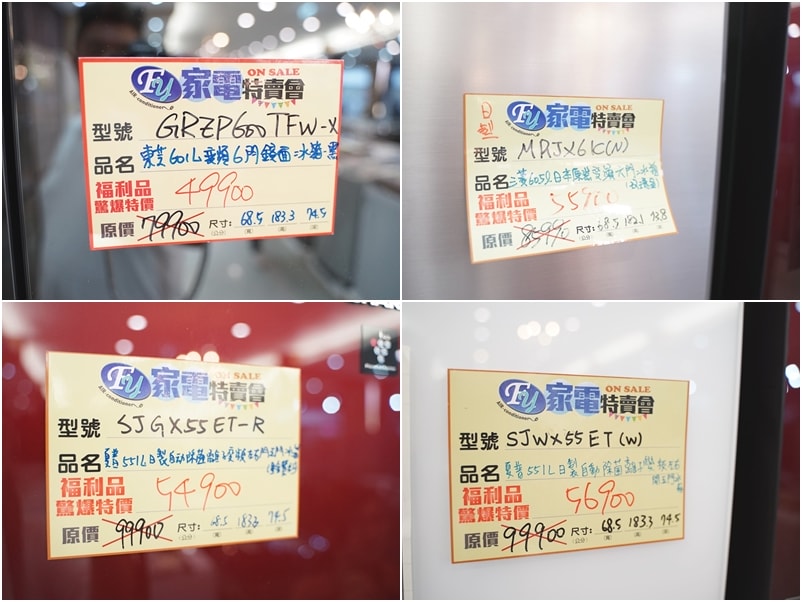 Fu 家電特賣會 ON SALE
AIR conditioner
型號 GRZP600TFW-X
品名 東芝601L變頻6門鏡面冰箱-黑
福利品
驚爆特價 49900
原價 79900 尺寸: 68.5 183.3 74.5
(公分) (寬) (高) (深)
日製
Fu 家電特賣會 ON SALE
AIR conditioner
型號 MRJX61C(N)
品名 三菱605L日本原裝變頻六門冰箱
福利品
驚爆特價 55900
原價 85990 尺寸: 68.5 182.1 73.8
(公分) (寬) (高) (深)
Fu 家電特賣會 ON SALE
AIR conditioner
型號 SJGX55ET-R
品名 夏普551L日製自動除菌離子變頻左右開五門冰箱
福利品
驚爆特價 54900
原價 99900 尺寸: 68.5 183.3 74.5
(公分) (寬) (高) (深)
Fu 家電特賣會 ON SALE
AIR conditioner
型號 SJWX55ET(W)
品名 夏普551L日製自動除菌離子變頻左右
開五門冰箱
福利品
驚爆特價 56900
原價 99900 尺寸: 68.5 183.3 74.5
(公分) (寬) (高) (深)